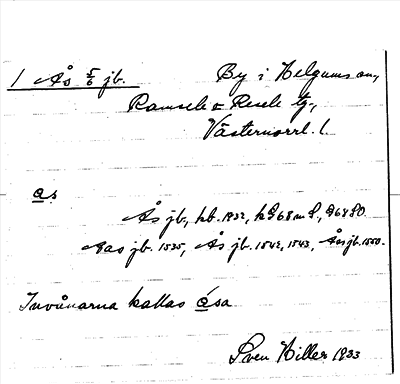 1 Ås 5/6 jb. By i Helgums sn,
Ramsele o Resele tg,
Västernorrl. l.
a.s
Ås jb., kb. 1932, kS 68 m S, S 68 SO.
Aas jb. 1535, Ås jb. 1542, 1543, Åås jb. 1550.
Invånarna kallas åsa
Sven Hiller 1933